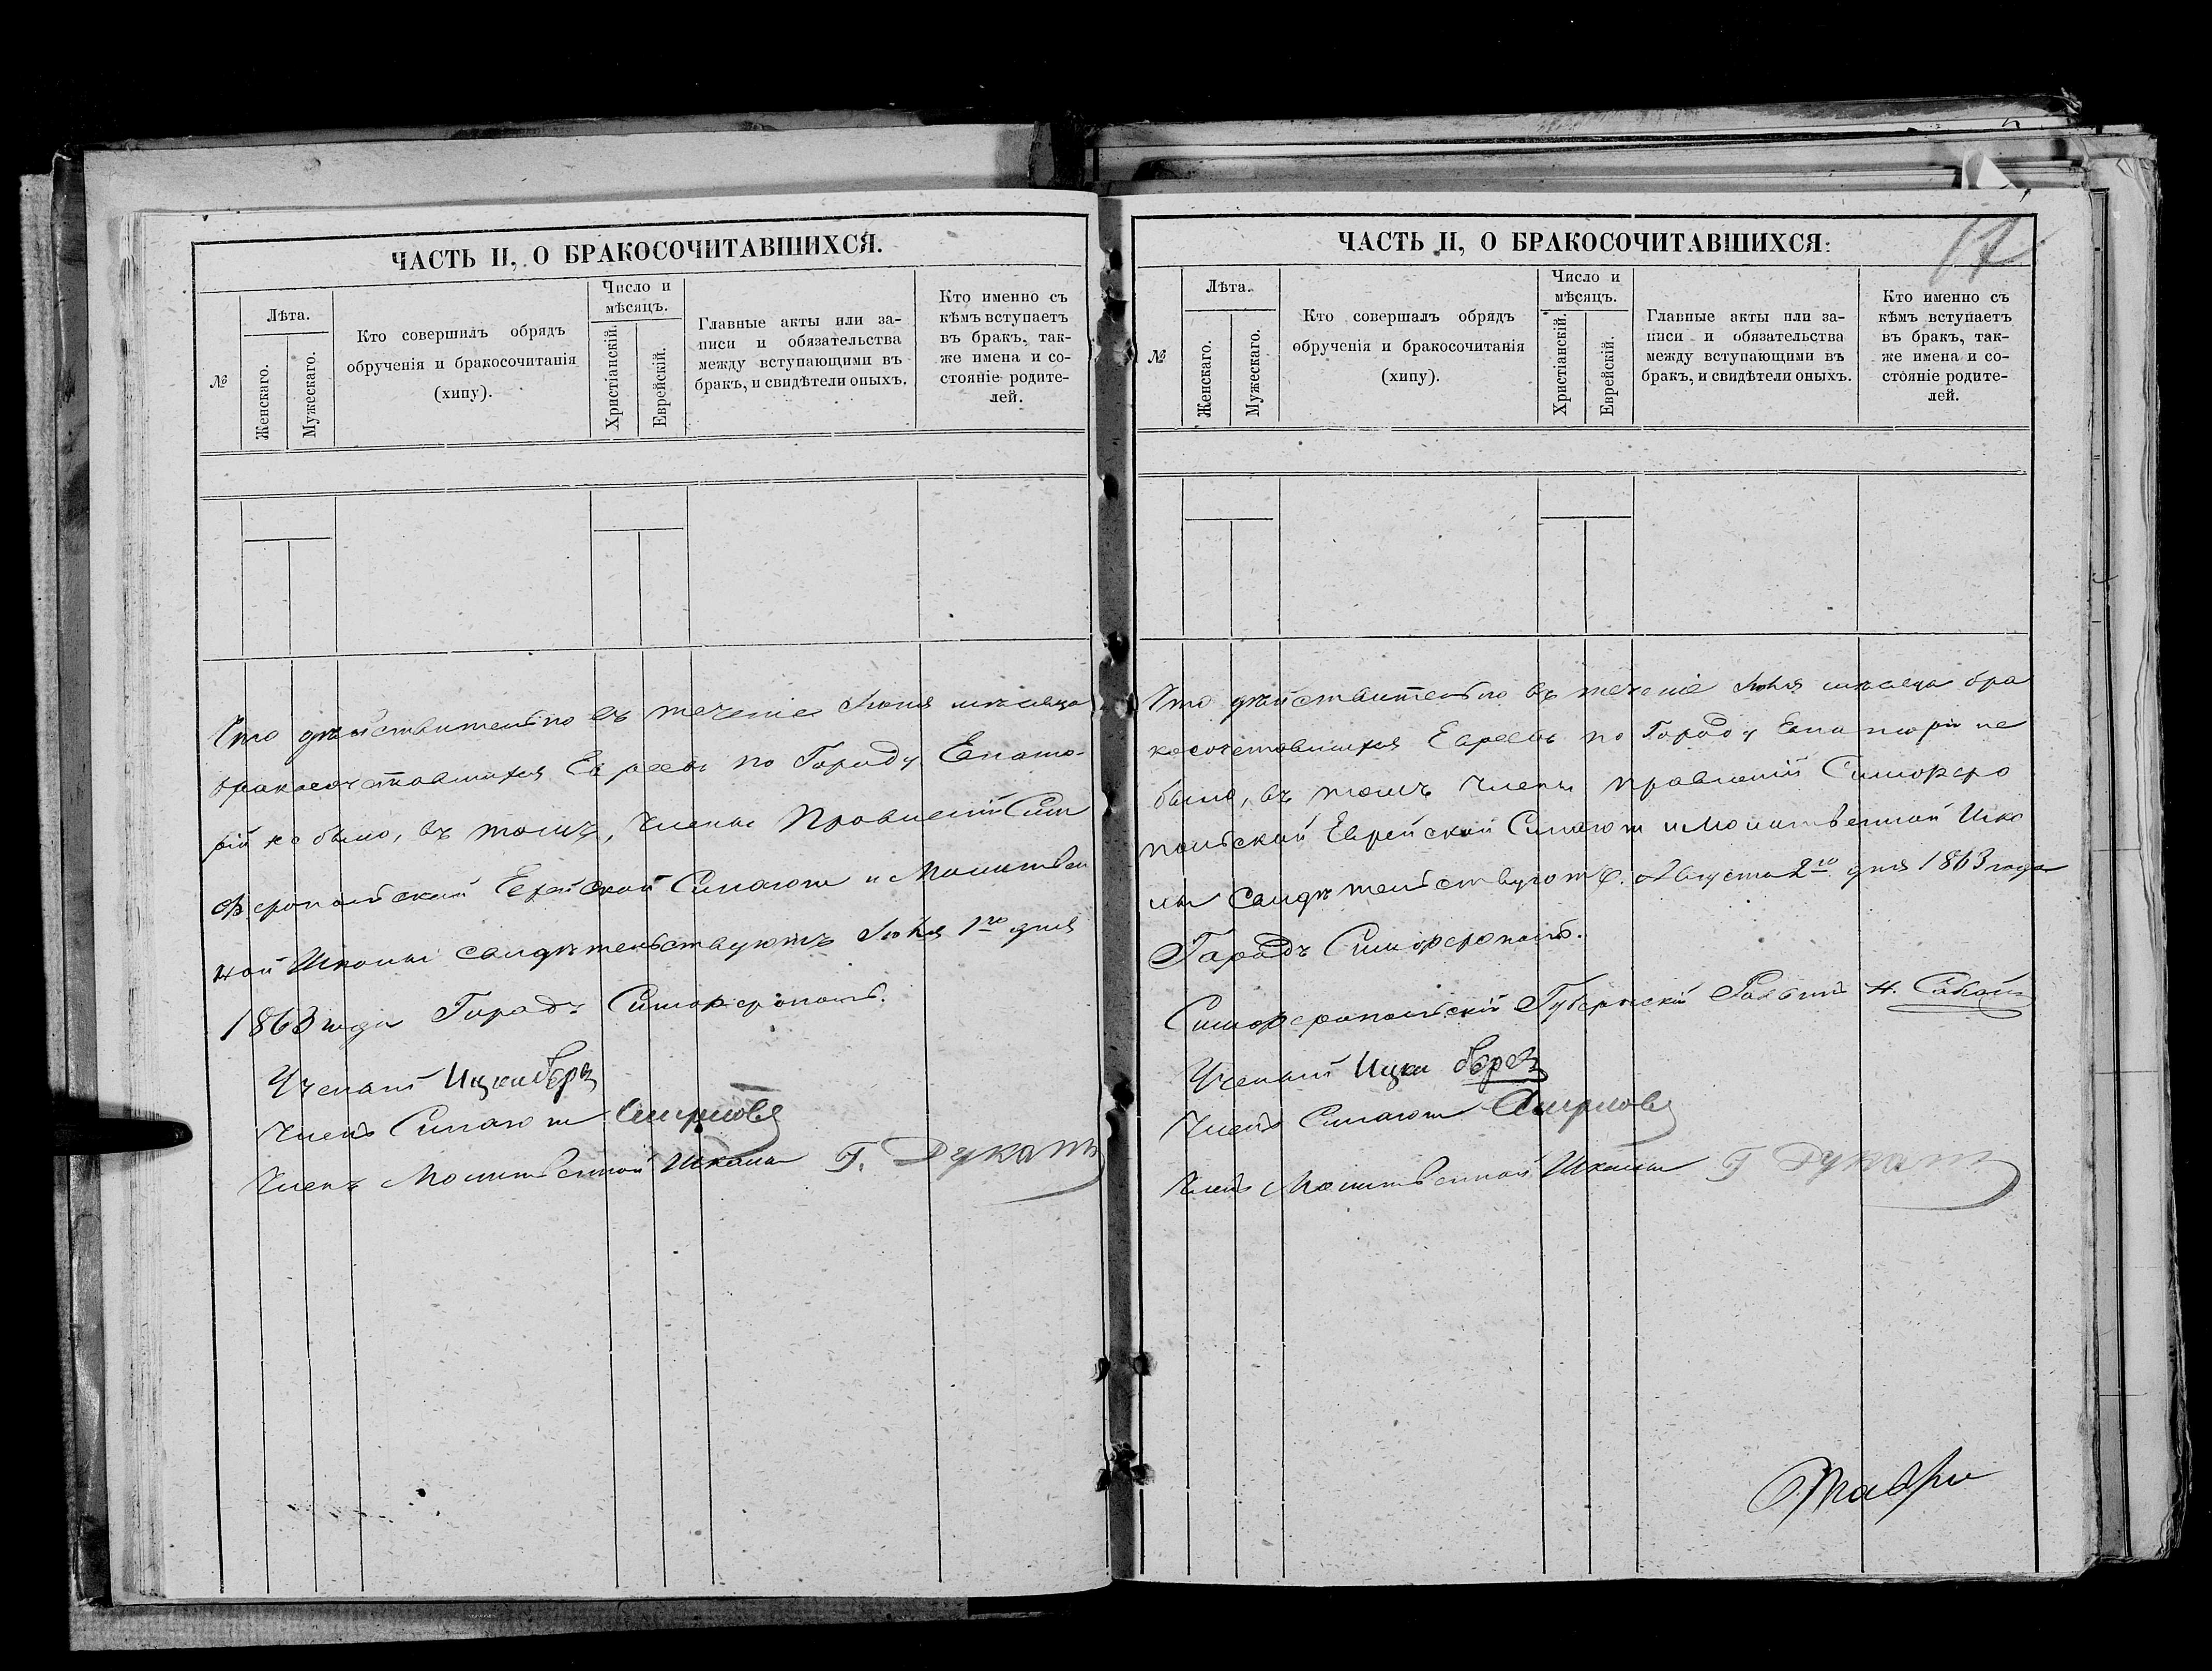 ЧАСТЬ II, О БРАКОСОЧИТАВШИХСЯ.
№
Лѣта.
Женскаго.
Мужескаго.
Кто совершилъ обрядъ
обрученія и бракосочитанія
(хипу).
Число и
мѣсяцъ.
Христіанскій.
Еврейскій.
Главные акты или за-
писи и обязательства
между вступающими въ
бракъ, и свидѣтели оныхъ.
Кто именно съ
кѣмъ вступаетъ
въ бракъ, так-
же имена и со-
стояніе родите-
лей.
Что дѣйствительно въ течение Июня мѣсяца
бракосочетавшихся Евреевъ по Городу Евпато-
рій не было, въ томъ, Члены Правленій Сим
феропольской Еврейской Синагоги и Молитвен
ной Школы свидѣтельствуютъ Июля 1го дня
1863 года Городъ Симферополь.
Ученый
Членъ Синагоги Смирновъ
Членъ Молитвенной Школы Г. Дукатъ
ЧАСТЬ II, О БРАКОСОЧИТАВШИХСЯ:
17
№
Лѣта.
Женскаго.
Мужескаго.
Кто совершалъ обрядъ
обрученія и бракосочитанія
(хипу).
Число и
мѣсяцъ.
Христіанскій.
Еврейскій.
Главные акты или за-
писи и обязательства
между вступающими въ
бракъ, и свидѣтели оныхъ.
Кто именно съ
кѣмъ вступаетъ
въ бракъ, так-
же имена и со-
стояніе родите-
лей.
Что дѣйствительно въ течение Июля мѣсяца бра
косочетавшихся Евреевъ по Городу Евпаторіи не
было, въ томъ Члены Правленій Симферо
польской Еврейской Синагоги и Молитвенной Шко
лы свидѣтельствуютъ. Августа 2го дня 1863 года
Городъ Симферополь.
Симферопольскій Губернскій Раввинъ
Ученый
Членъ Синагоги Смирновъ
Членъ Молитвенной Школы Г Дукатъ